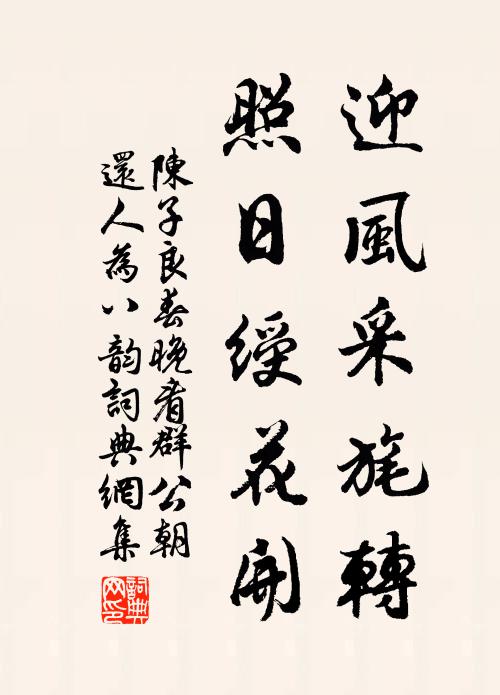 迎風采旄轉
照日綬花開
陳子良春晚看群公朝
還人為八韵詞典網集
詞典网印